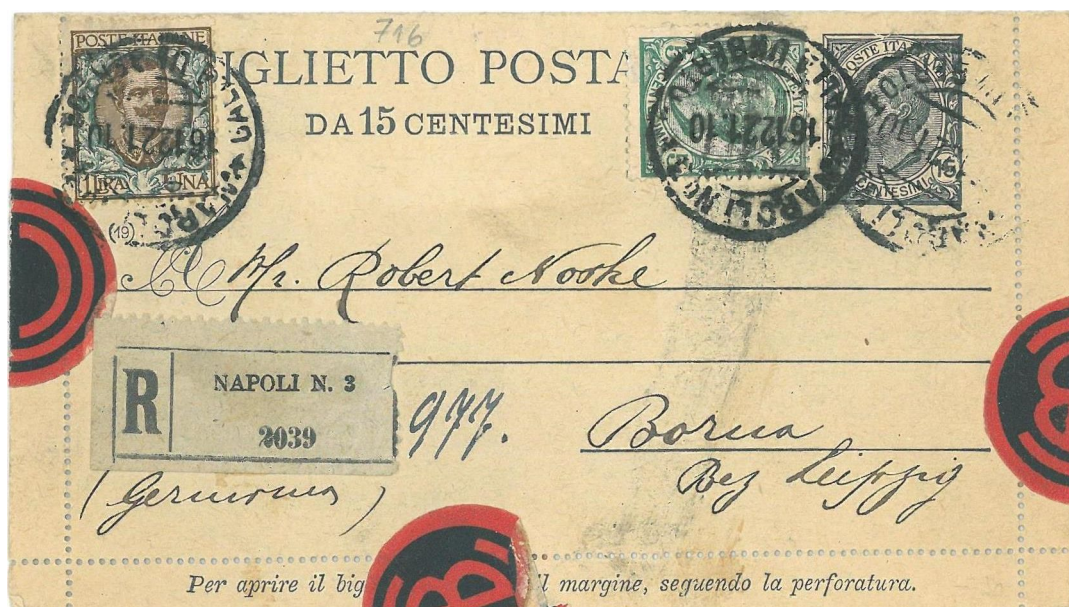 716
POSTE ITALIANE
BIGLIETTO POSTA
DA 15 CENTESIMI
1 LIRA UNA
16.12.21.10
16.12.21.10
POSTE ITAL
15
CENTESIMI
(19)
A Mr. Robert Noske
R NAPOLI N. 3
2039
977.
Borna
Bez Leipzig
(Germania)
Per aprire il big l margine, seguendo la perforatura.